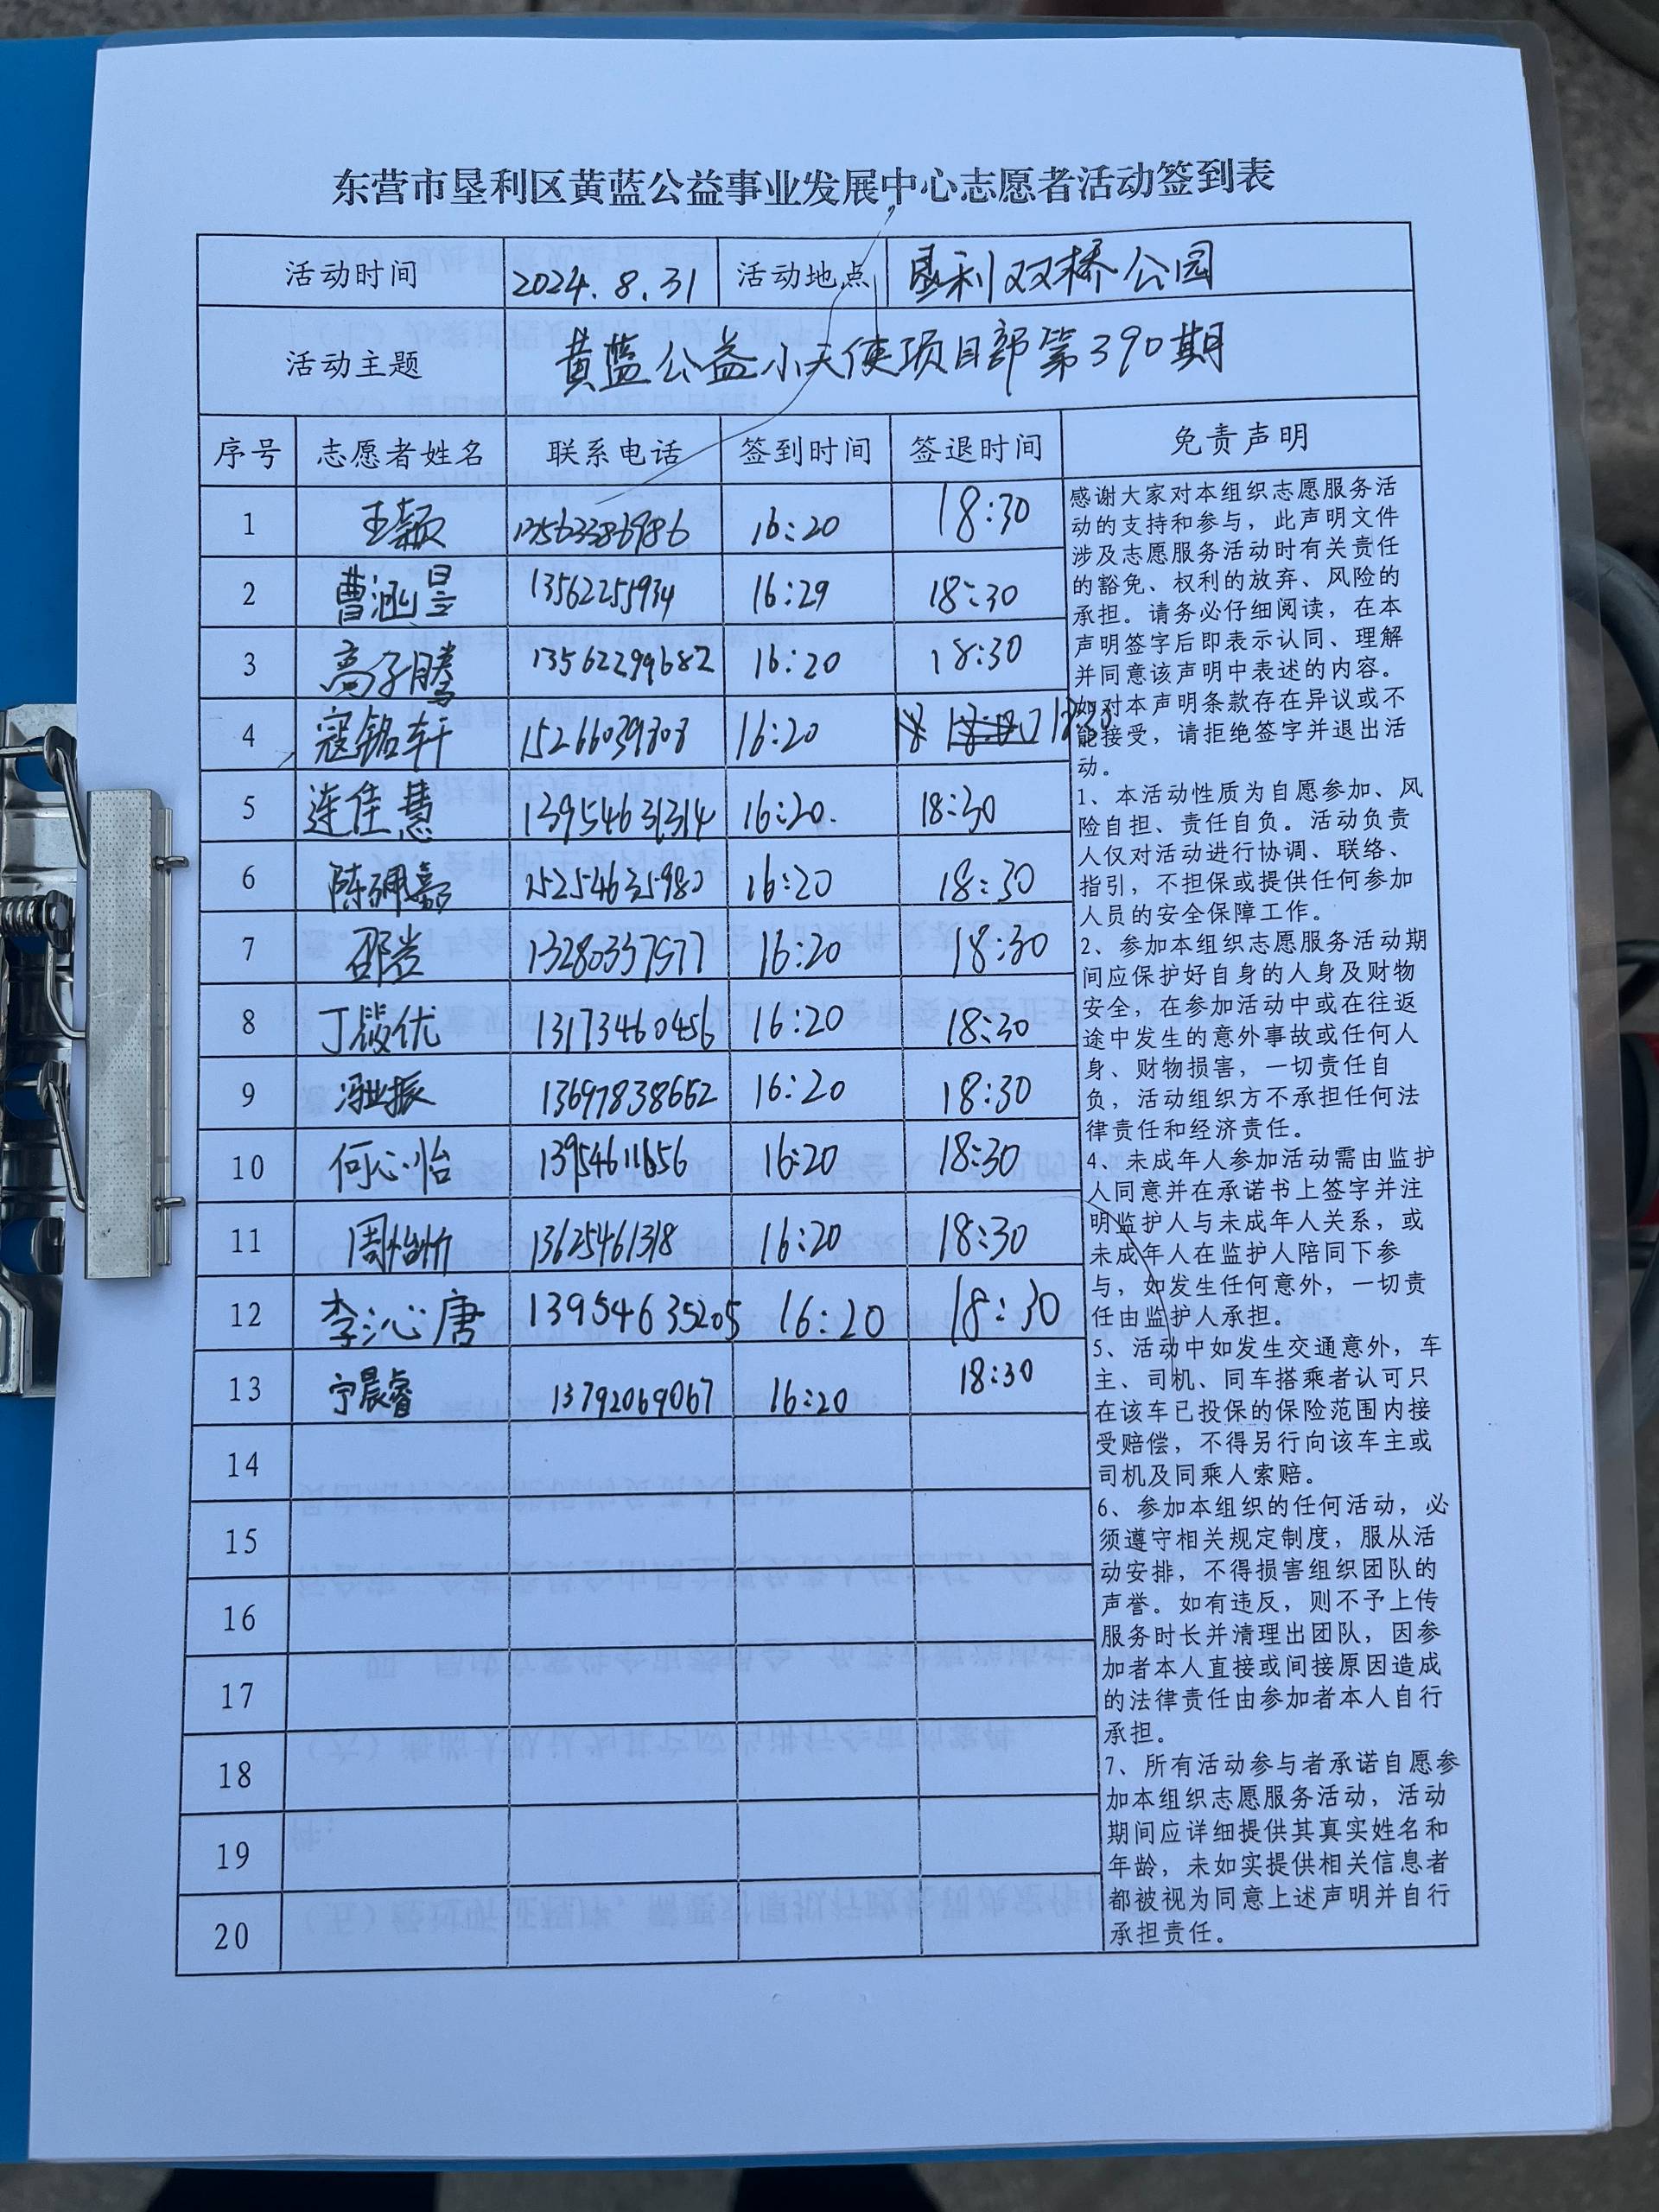 东营市垦利区黄蓝公益事业发展中心志愿者活动签到表
活动时间 2024.8.31 活动地点 垦利双桥公园
活动主题 黄蓝公益小天使项目部第390期
序号 志愿者姓名 联系电话 签到时间 签退时间 免责声明
1 王颖 13562386986 16:20 18:30
2 曹涵昱 13562255934 16:29 18:30
3 高子腾 13562299682 16:20 18:30
4 寇铭轩 15266039808 16:20 18:30
5 连佳慧 13954631314 16:20. 18:30
6 陈珮嘉 15254635980 16:20 18:30
7 邵岩 13280337577 16:20 18:30
8 丁筱优 13173460456 16:20 18:30
9 冯业振 13697838662 16:20 18:30
10 何心怡 13954611656 16:20 18:30
11 周怡忻 13625461318 16:20 18:30
12 李沁唐 13954635205 16:20 18:30
13 宁晨睿 13792069067 16:20 18:30
14
15
16
17
18
19
20
感谢大家对本组织志愿服务活
动的支持和参与，此声明文件
涉及志愿服务活动时有关责任
的豁免、权利的放弃、风险的
承担。请务必仔细阅读，在本
声明签字后即表示认同、理解
并同意该声明中表述的内容。
如对本声明条款存在异议或不
能接受，请拒绝签字并退出活
动。
1、本活动性质为自愿参加、风
险自担、责任自负。活动负责
人仅对活动进行协调、联络、
指引，不担保或提供任何参加
人员的安全保障工作。
2、参加本组织志愿服务活动期
间应保护好自身的人身及财物
安全，在参加活动中或在往返
途中发生的意外事故或任何人
身、财物损害，一切责任自
负，活动组织方不承担任何法
律责任和经济责任。
4、未成年人参加活动需由监护
人同意并在承诺书上签字并注
明监护人与未成年人关系，或
未成年人在监护人陪同下参
与，如发生任何意外，一切责
任由监护人承担。
5、活动中如发生交通意外，车
主、司机、同车搭乘者认可只
在该车已投保的保险范围内接
受赔偿，不得另行向该车主或
司机及同乘人索赔。
6、参加本组织的任何活动，必
须遵守相关规定制度，服从活
动安排，不得损害组织团队的
声誉。如有违反，则不予上传
服务时长并清理出团队，因参
加者本人直接或间接原因造成
的法律责任由参加者本人自行
承担。
7、所有活动参与者承诺自愿参
加本组织志愿服务活动，活动
期间应详细提供其真实姓名和
年龄，未如实提供相关信息者
都被视为同意上述声明并自行
承担责任。